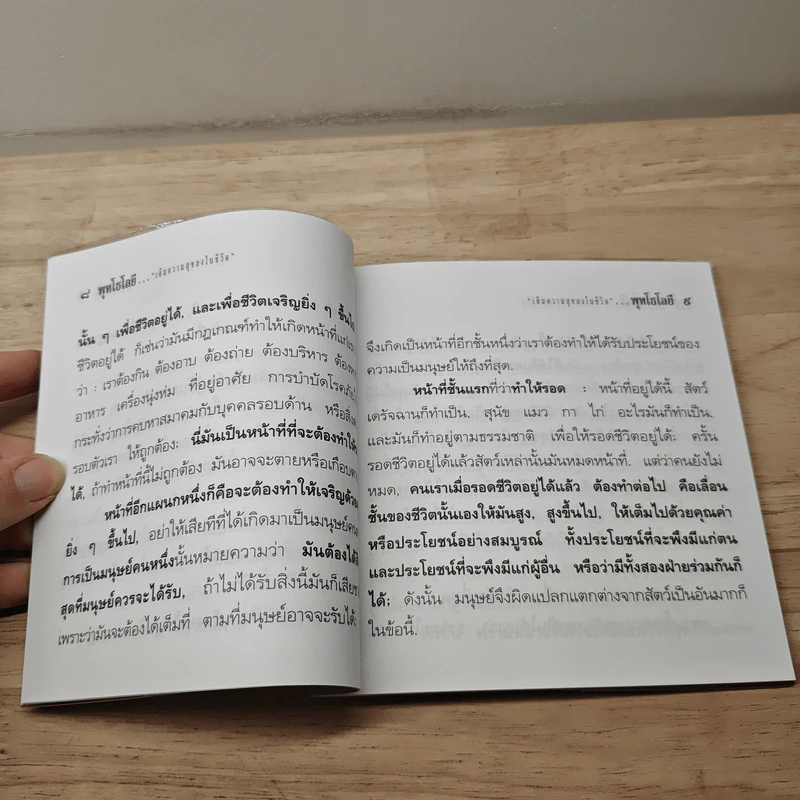 ๘ พุทโธโลยี..."เติมความสุขลงในชีวิต"
นั้น ๆ เพื่อชีวิตอยู่ได้, และเพื่อชีวิตเจริญยิ่ง ๆ ขึ้นไป
ชีวิตอยู่ได้ ก็เช่นว่ามันมีกฎเกณฑ์ทำให้เกิดหน้าที่แก่เรา
ว่า : เราต้องกิน ต้องอาบ ต้องถ่าย ต้องบริหาร
อาหาร เครื่องนุ่งห่ม ที่อยู่อาศัย การบำบัดโรคภัย
กระทั่งว่าการคบหาสมาคมกับบุคคลรอบด้าน หรือสิ่ง
รอบตัวเรา ให้ถูกต้อง: นี่มันเป็นหน้าที่ที่จะต้องทำให้
ได้. ถ้าทำหน้าที่นี้ไม่ถูกต้อง มันอาจจะตายหรือเกือบ
หน้าที่อีกแผนกหนึ่งก็คือจะต้องทำให้เจริญด้วย
ยิ่ง ๆ ขึ้นไป, อย่าให้เสียทีที่ได้เกิดมาเป็นมนุษย์
การเป็นมนุษย์คนหนึ่งนั้นหมายความว่า มันต้องได้
สุดที่มนุษย์ควรจะได้รับ, ถ้าไม่ได้รับสิ่งนี้มันก็เสีย
เพราะว่ามันจะต้องได้เต็มที่ ตามที่มนุษย์อาจจะรับได้:
"เติมความสุขลงในชีวิต"...พุทโธโลยี ๙
จึงเกิดเป็นหน้าที่อีกชั้นหนึ่งว่าเราต้องทำให้ได้รับประโยชน์ของ
ความเป็นมนุษย์ให้ถึงที่สุด.
หน้าที่ชั้นแรกที่ว่าทำให้รอด : หน้าที่อยู่ได้นี้ สัตว์
เดรัจฉานก็ทำเป็น, สุนัข แมว กา ไก่ อะไรมันก็ทำเป็น,
และมันก็ทำอยู่ตามธรรมชาติ เพื่อให้รอดชีวิตอยู่ได้: ครั้น
รอดชีวิตอยู่ได้แล้วสัตว์เหล่านั้นมันหมดหน้าที่, แต่ว่าคนยังไม่
หมด, คนเราเมื่อรอดชีวิตอยู่ได้แล้ว ต้องทำต่อไป คือเลื่อน
ชั้นของชีวิตนั้นเองให้มันสูง, สูงขึ้นไป, ให้เต็มไปด้วยคุณค่า
หรือประโยชน์อย่างสมบูรณ์ ทั้งประโยชน์ที่จะพึงมีแก่ตน
และประโยชน์ที่จะพึงมีแก่ผู้อื่น หรือว่ามีทั้งสองฝ่ายร่วมกันก็
ได้: ดังนั้น มนุษย์จึงผิดแปลกแตกต่างจากสัตว์เป็นอันมากก็
ในข้อนี้.